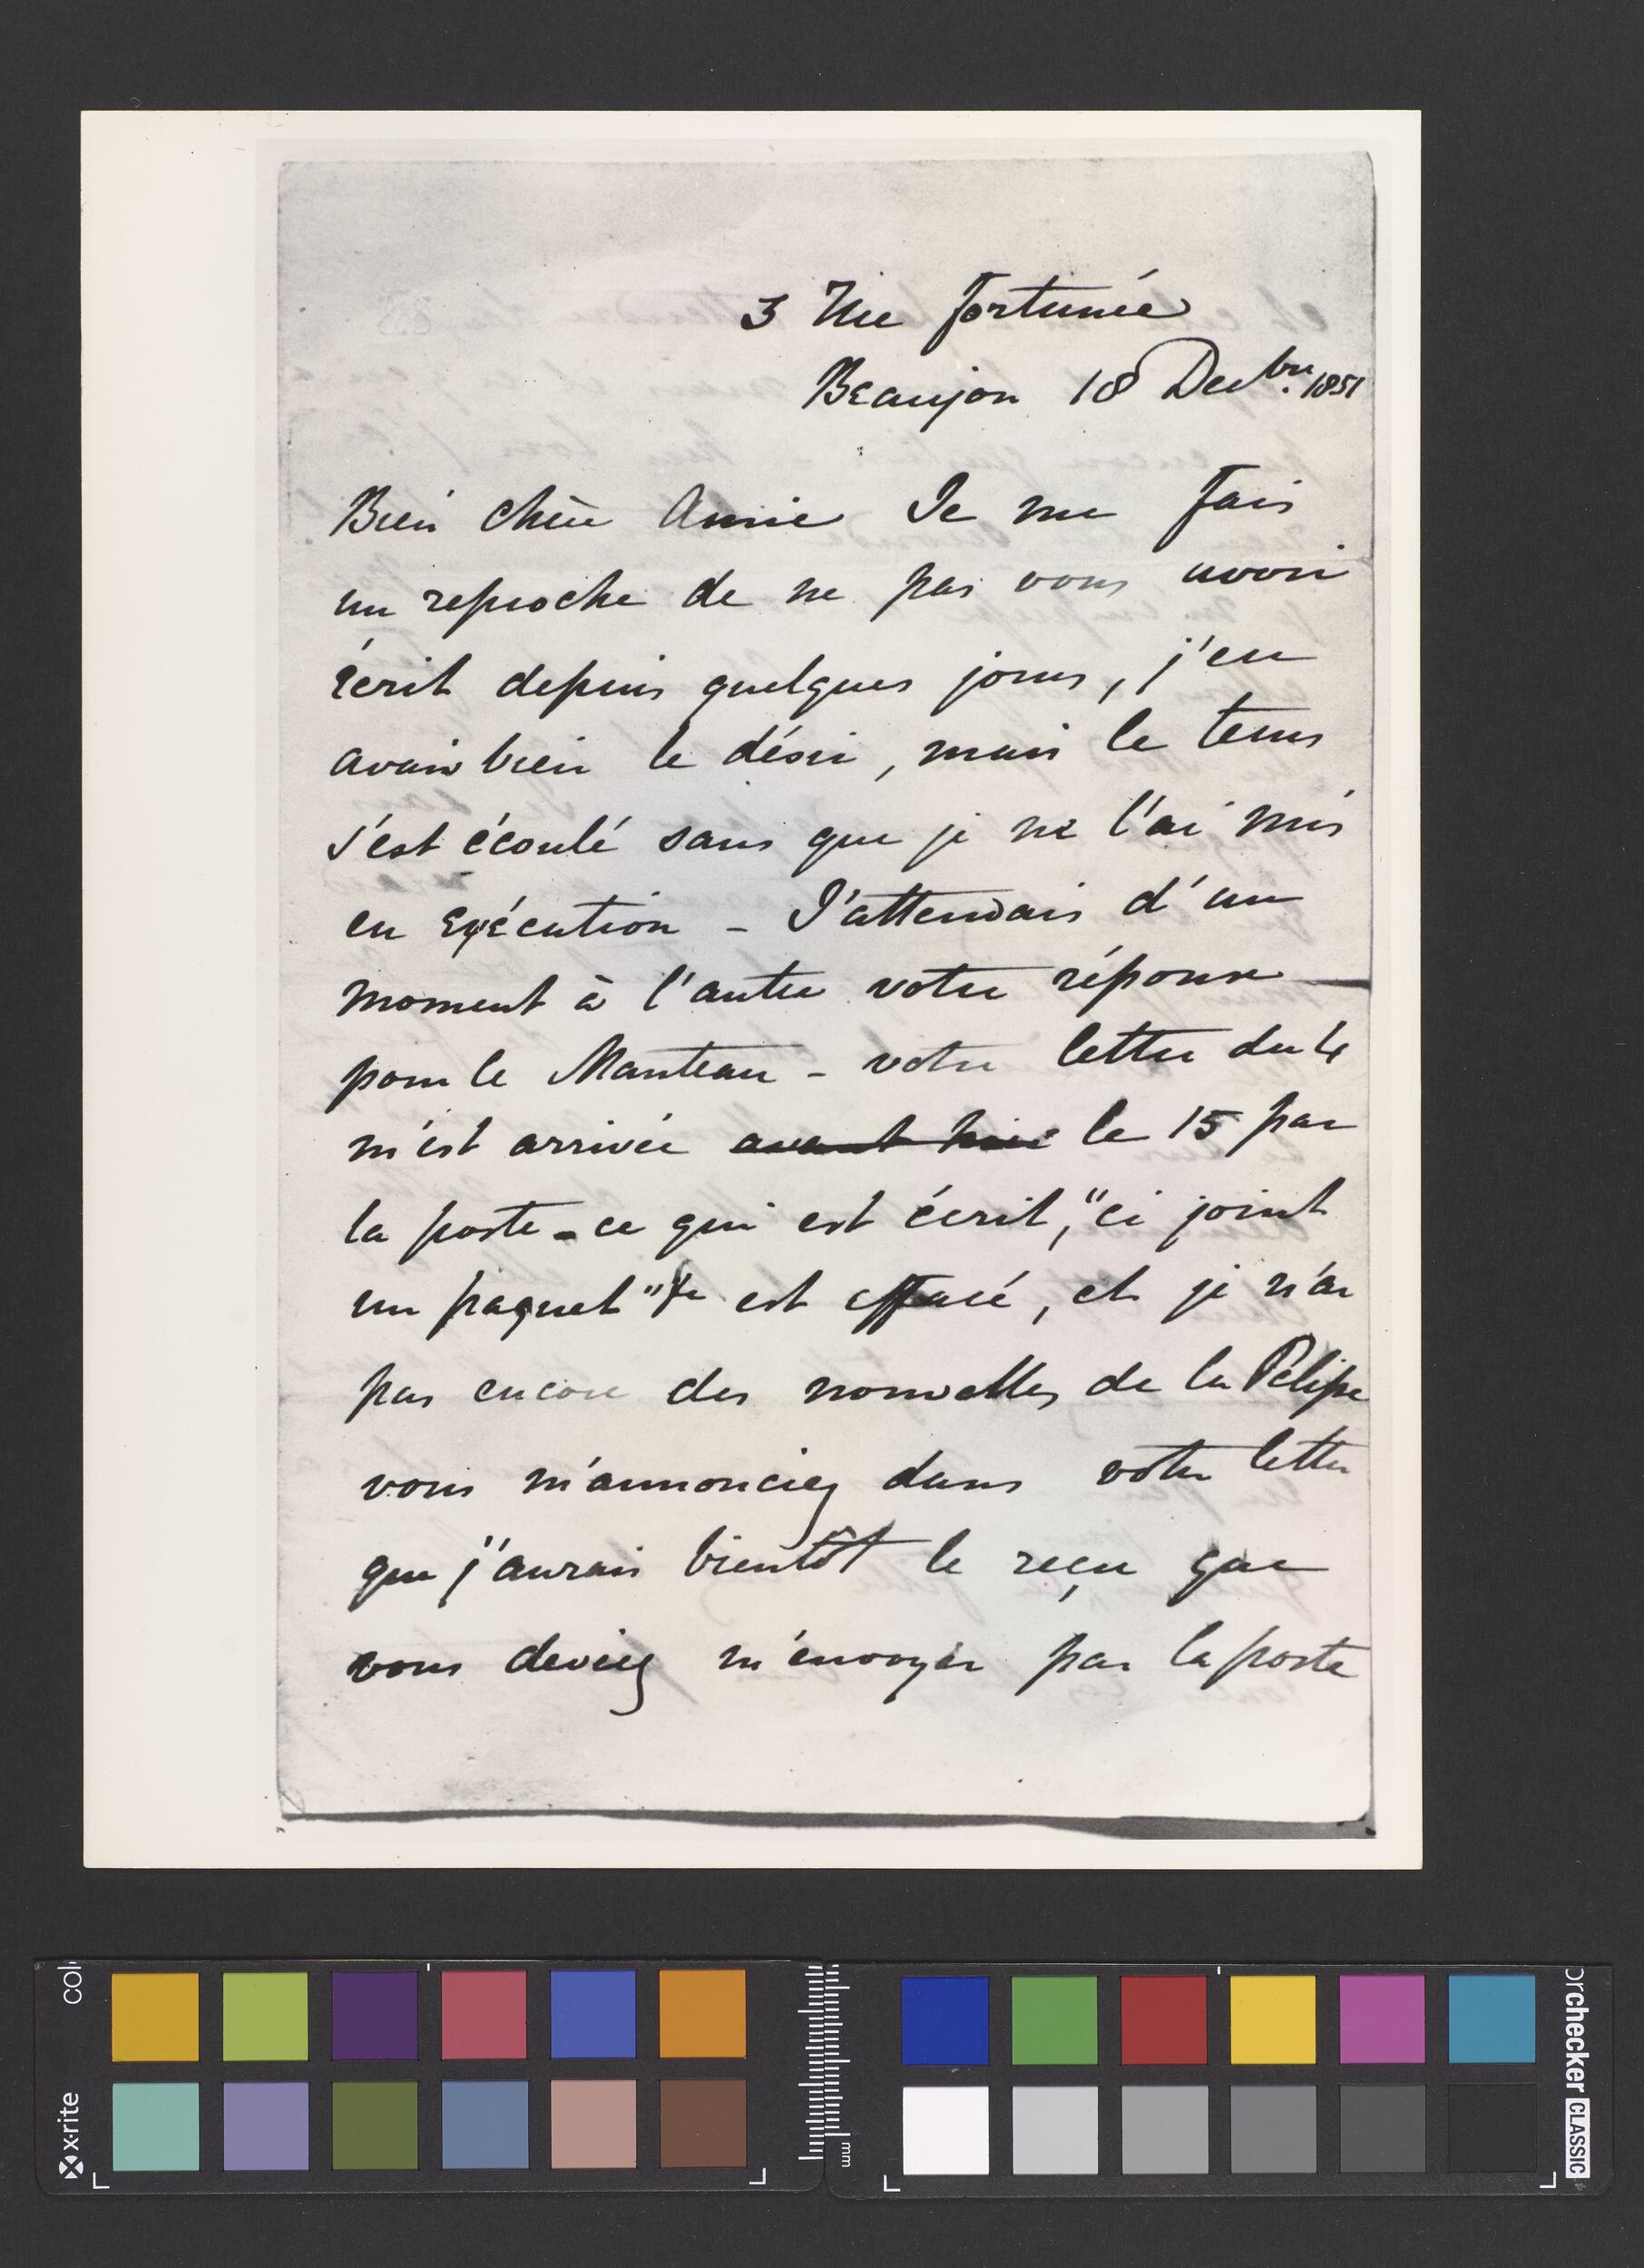 3 Rue Fortunée
Beaujon 18 Decbre. 1851
Bien chère Amie Je me fais
un reproche de ne pas vous avoir
écrit depuis quelques jours, j'en
avais bien le désir, mais le tems
s'est écoulé sans que je ne l'ai mis
en exécution - J'attendais d'un
moment à l'autre votre réponse
pour le Manteau - votre lettre du 4
m'est arrivée avant hier le 15 par
la poste - ce qui est écrit, "ci joint
un paquet" est effacé, et je n'ai
pas encore des nouvelles de la Pelisse
vous m'annonciez dans votre lettre
que j'aurais bientôt le reçu que
vous deviez m'envoyer par la poste
x-rite
col
mm
orchecker CLASSIC